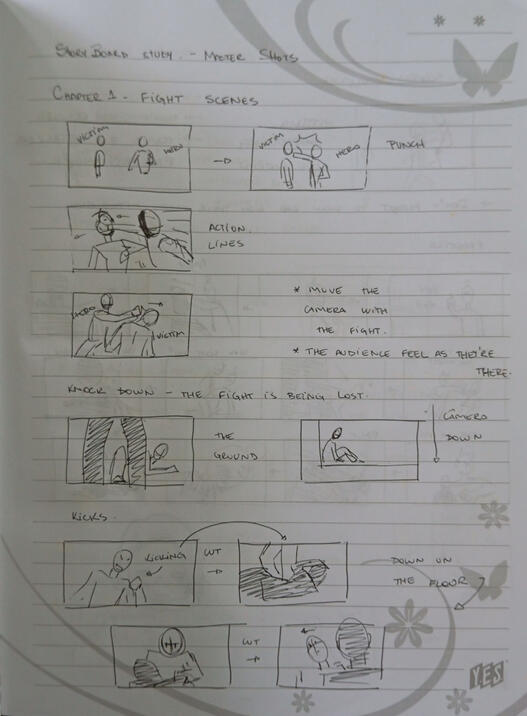 STORY BOARD STUDY. - MASTER SHOTS
CHAPTER 1 - FIGHT SCENES
VICTIM
HERO
VICTIM
HERO
PUNCH
ACTION
LINES
HERO
VICTIM
* MOVE THE
CAMERA WITH
THE FIGHT.
* THE AUDIENCE FEEL AS THEY'RE
THERE.
KNOCK DOWN - THE FIGHT IS BEING LOST.
THE
GROUND
CAMERA
DOWN
KICKS.
KICKING
CUT
DOWN ON
THE FLOOR
CUT
YES